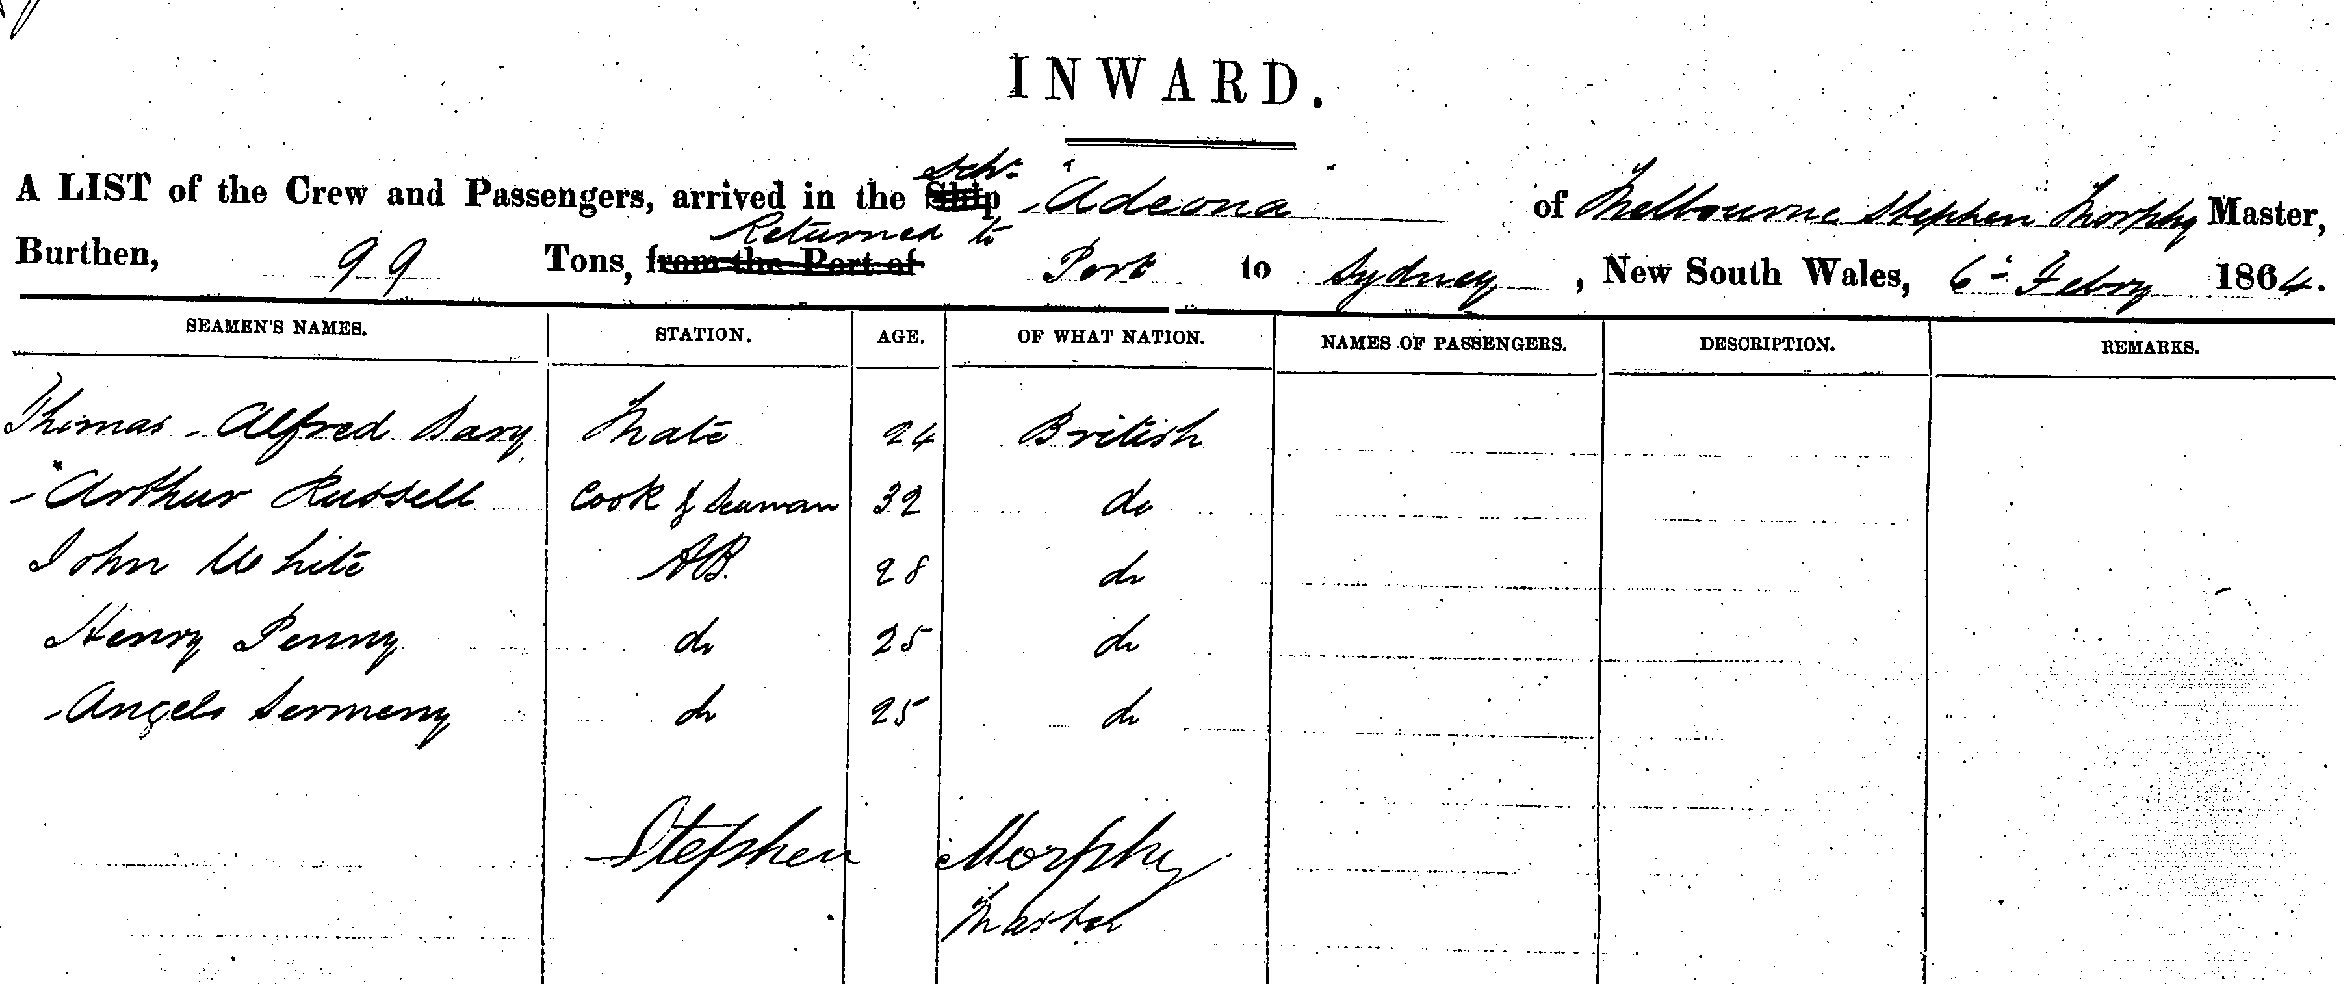 INWARD.
A LIST of the Crew and Passengers, arrived in the Ship Schr. "Adeona" of Melbourne Stephen Morphy Master,
Burthen, 99 Tons, from the Port of Returned to Port to Sydney, New South Wales, 6 Febry 1864.
SEAMEN'S NAMES. STATION. AGE. OF WHAT NATION. NAMES OF PASSENGERS. DESCRIPTION. REMARKS.
Thomas Alfred Davy Mate 24 British
Arthur Russell Cook & Seaman 32 do
John White AB. 28 do
Henry Penny do 25 do
Angelo do 25 do
Stephen Morphy
Master